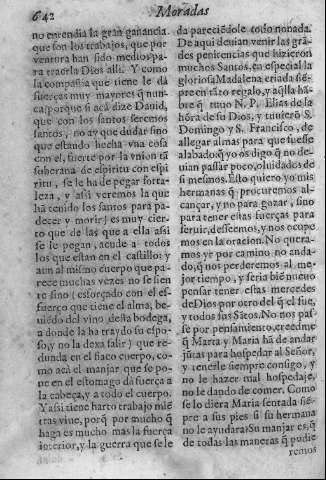 642
Moradas
no entendia la gran ganancia
que son los trabajos, que por
ventura han sido medios pa-
ra traerla Dios alli. Y como
la compañia que tiene le dà
fuerças muy mayores q̃ nun-
ca (porque si acà dize Dauid,
que con los santos seremos
santos, no ay que dudar sino
que estando hecha vna cosa
con el fuerte por la vnion tã
soberana de espiritu con espi
ritu, se le ha de pegar forta-
leza, y assi veremos la que
hã tenido los santos para pa-
decer y morir) es muy cier-
to que de las que a ella alsi
se le pegan, acude a todos
los que estan en el castillo: y
aun al mismo cuerpo que pa-
rece muchas vezes no se sien
te sino (esforçado con el es-
fuerço que tiene el alma, be-
uiedo del vino desta bodega,
a donde la ha traydo su espo-
so, y no la dexa salir) que re-
dunda en el flaco cuerpo, co-
mo acà el manjar que se po-
ne en el estomago dà fuerça a
la cabeça, y a todo el cuerpo.
Y assi tiene harto trabajo miẽ
tras viue, porq̃ por mucho q̃
haga es mucho mas la fuerça
interior, y la guerra que se le
da pareciẽdole todo nonada.
De aqui deuian venir las grã-
des penitencias que hizieron
muchos Santos, en especial la
gloriosa Madalena, criada siẽ-
pre en tãto regalo, y aq̃lla hã-
bre q̃ tuuo N. P. Elias de la
hõra de su Dios, y tuuierõ S.
Domingo y S. Francisco, de
allegar almas para que fuesse
alabado: q̃ yo os digo q̃ no de-
uian passar poco, oluidados de
si mesmos. Esto quiero yo mis
hermanas q̃ procuremos al-
cançar, y no para gozar, sino
para tener estas fuerças para
seruir, desseemos, y nos ocupe
mos en la oracion. No quera-
mos yr por camino no anda-
do, q̃ nos perderemos al me-
jor tiempo, y seria biẽ nueuo
pensar tener estas mercedes
de Dios por otro del q̃ el fue,
y todos sus Sãtos. No nos pas-
se por pensamiento, creedme
q̃ Marta y Maria hã de andar
jũtas para hospedar al Señor,
y tenerle siempre consigo, y
no le hazer mal hospedaje,
no le dando de comer. Como
se lo diera Maria sentada siẽ-
pre a sus pies si su hermana
no le ayudara? Su manjar es, q̃
de todas las maneras q̃ pudie
remos